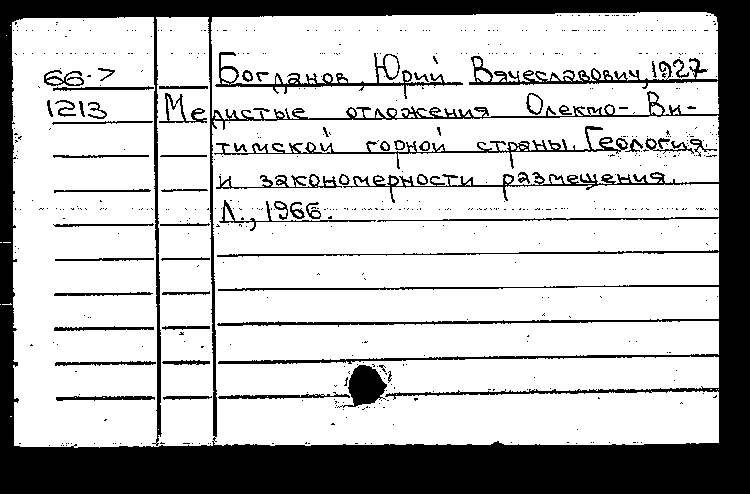 66-7
1213
Богданов, Юрий Вячеславович, 1927
Медистые отложения Олекмо-Ви-
тимской горной страны. Геология
и закономерности размещения.
Л., 1966.